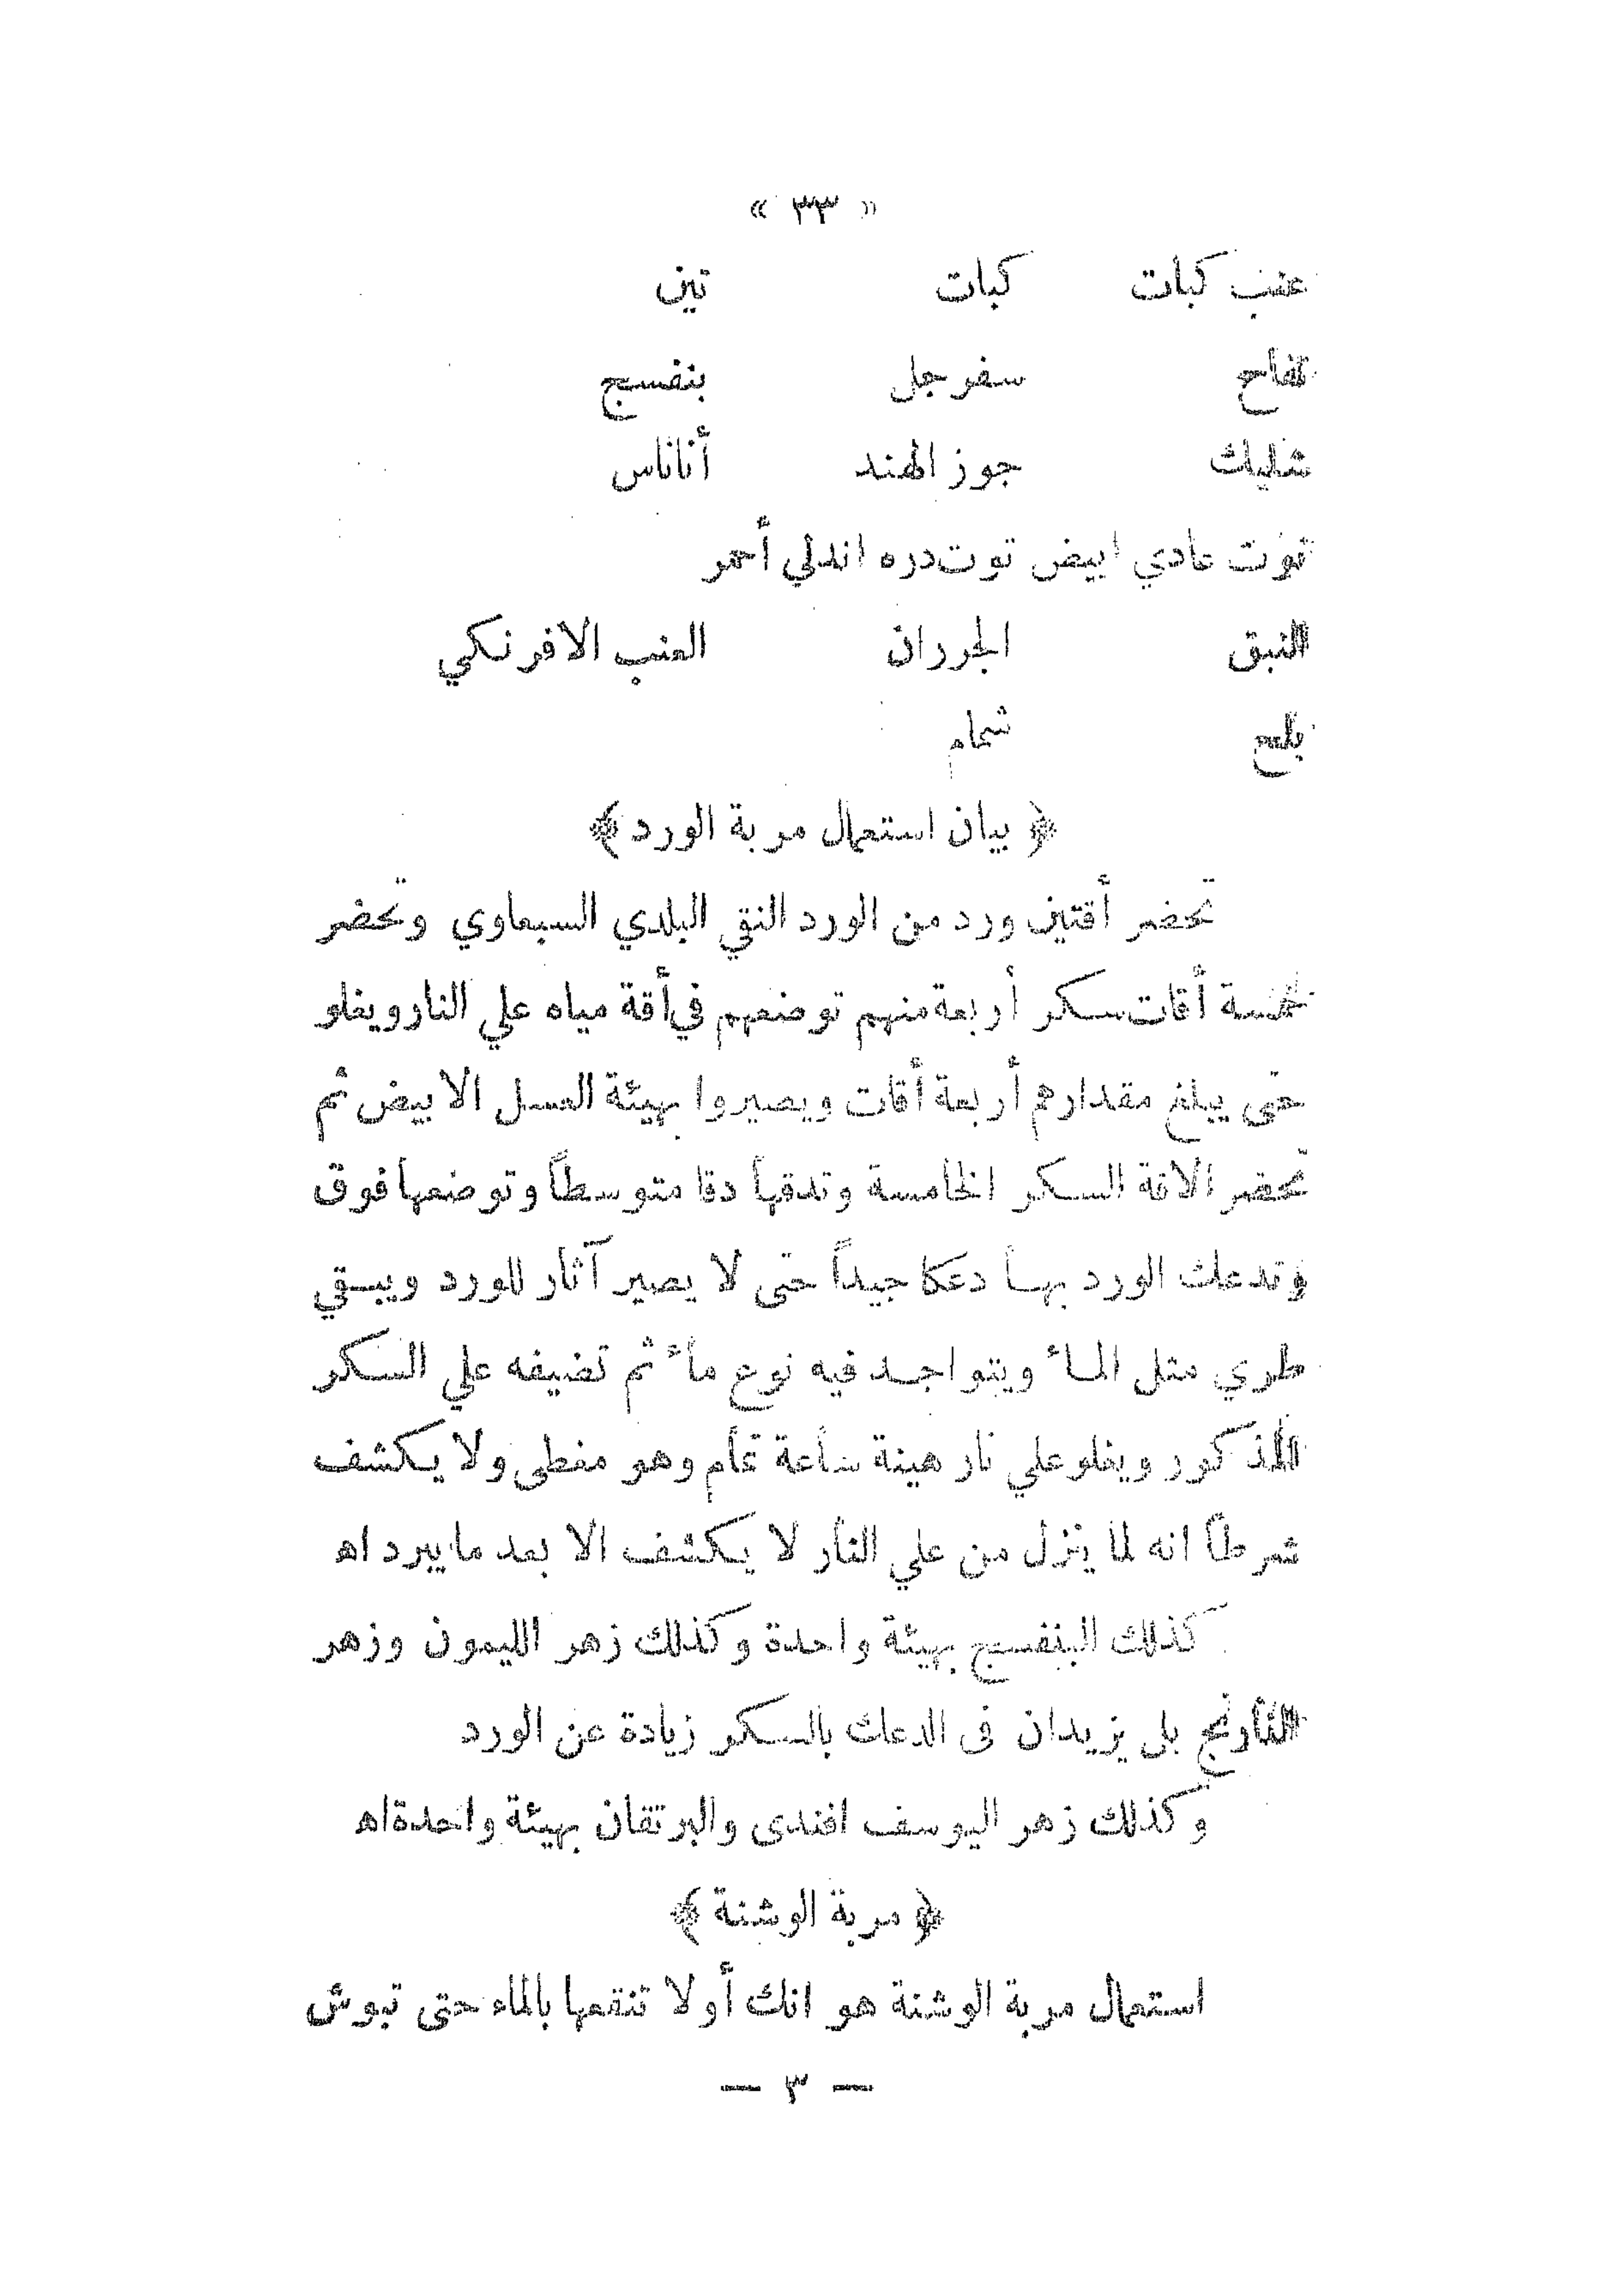 « ٣٣ »
عنب كبات كبات تين
تفاح سفرجل بنفسج
شليك جوز الهند أناناس
توت عادي ابيض توت دره اندلي أحمر
النبق الجرران العنب الافرنكي
بلح شمام
﴿ بيان استعمال مربة الورد ﴾
تحضر أقتين ورد من الورد النقي البلدي السبعاوي وتحضر
خمسة أقات سكر أربعة منهم توضعهم في أقة مياه علي النار ويغلو
حتى يبلغ مقدارهم أربعة أقات ويصيروا بهيئة العسل الابيض ثم
تحضر الاقة السكر الخامسة وتدقها دقا متوسطاً وتوضعها فوق
وتدعك الورد بها دعكا جيداً حتى لا يصير آثار للورد ويبقي
طري مثل الماء ويتواجد فيه نوع ماء ثم تضيفه علي السكر
المذكور ويغلو علي نار هينة ساعة تمام وهو مغطى ولا يكشف
شرطاً انه لما ينزل من علي النار لا يكشف الا بعد ما يبرد اه
كذلك البنفسج بهيئة واحدة وكذلك زهر الليمون وزهر
النارنج بل يزيدان فى الدعك بالسكر زيادة عن الورد
وكذلك زهر اليوسف افندى والبرتقان بهيئة واحدة اه
﴿ مربة الوشنة ﴾
استعمال مربة الوشنة هو انك أولا تنقعها بالماء حتى تبوش
— ٣ —